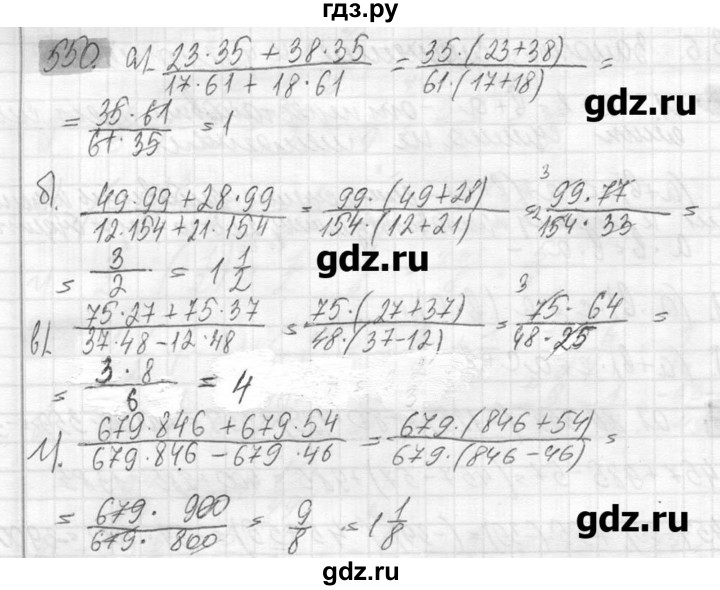 гдз.ру
550. а). (23·35 + 38·35)/(17·61 + 18·61) = 35·(23+38)/61·(17+18) =
gdz.ru
= 35·61/61·35 = 1
б). (49·99 + 28·99)/(12·154 + 21·154) = 99·(49+28)/154·(12+21) = 3 99·77/2 154·33 =
gdz.ru
= 3/2 = 1 1/2
в). (75·27 + 75·37)/(37·48 − 12·48) = 75·(27+37)/48·(37−12) = 3 75·64/48·25 =
= 3·8/6 = 4
г). (679·846 + 679·54)/(679·846 − 679·46) = 679·(846+54)/679·(846−46) =
= 679·900/679·800 = 9/8 = 1 1/8
gdz.ru
gdz.ru